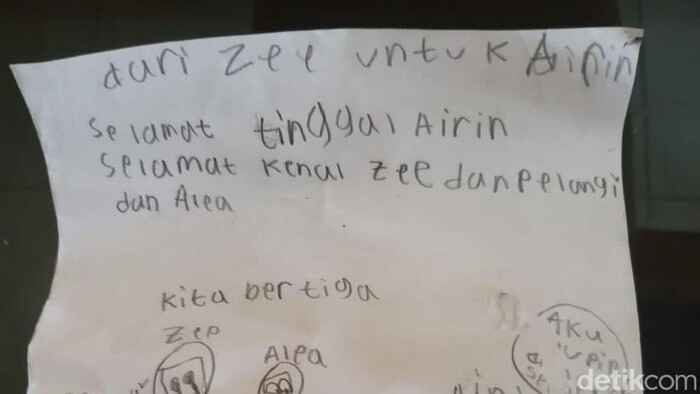 dari zee untuk Airin
Selamat tinggal Airin
selamat kenal zee dan pelangi
dan Alea
Kita bertiga
Zee
Alea
AKU
detikcom